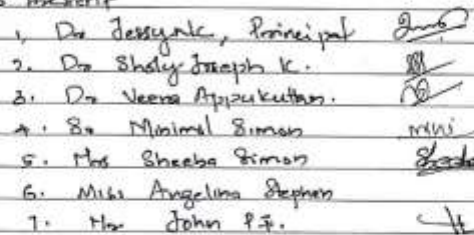 1, Dr Jessy N.C, Principal
2. Dr Sholy Joseph K.
3. Dr Veena Appukuttan.
4. Sr Minimol Simon mini
5. Mrs Sheeba Simon Sheeba
6. Miss Angelina Stephen
7. Mr John P.F.